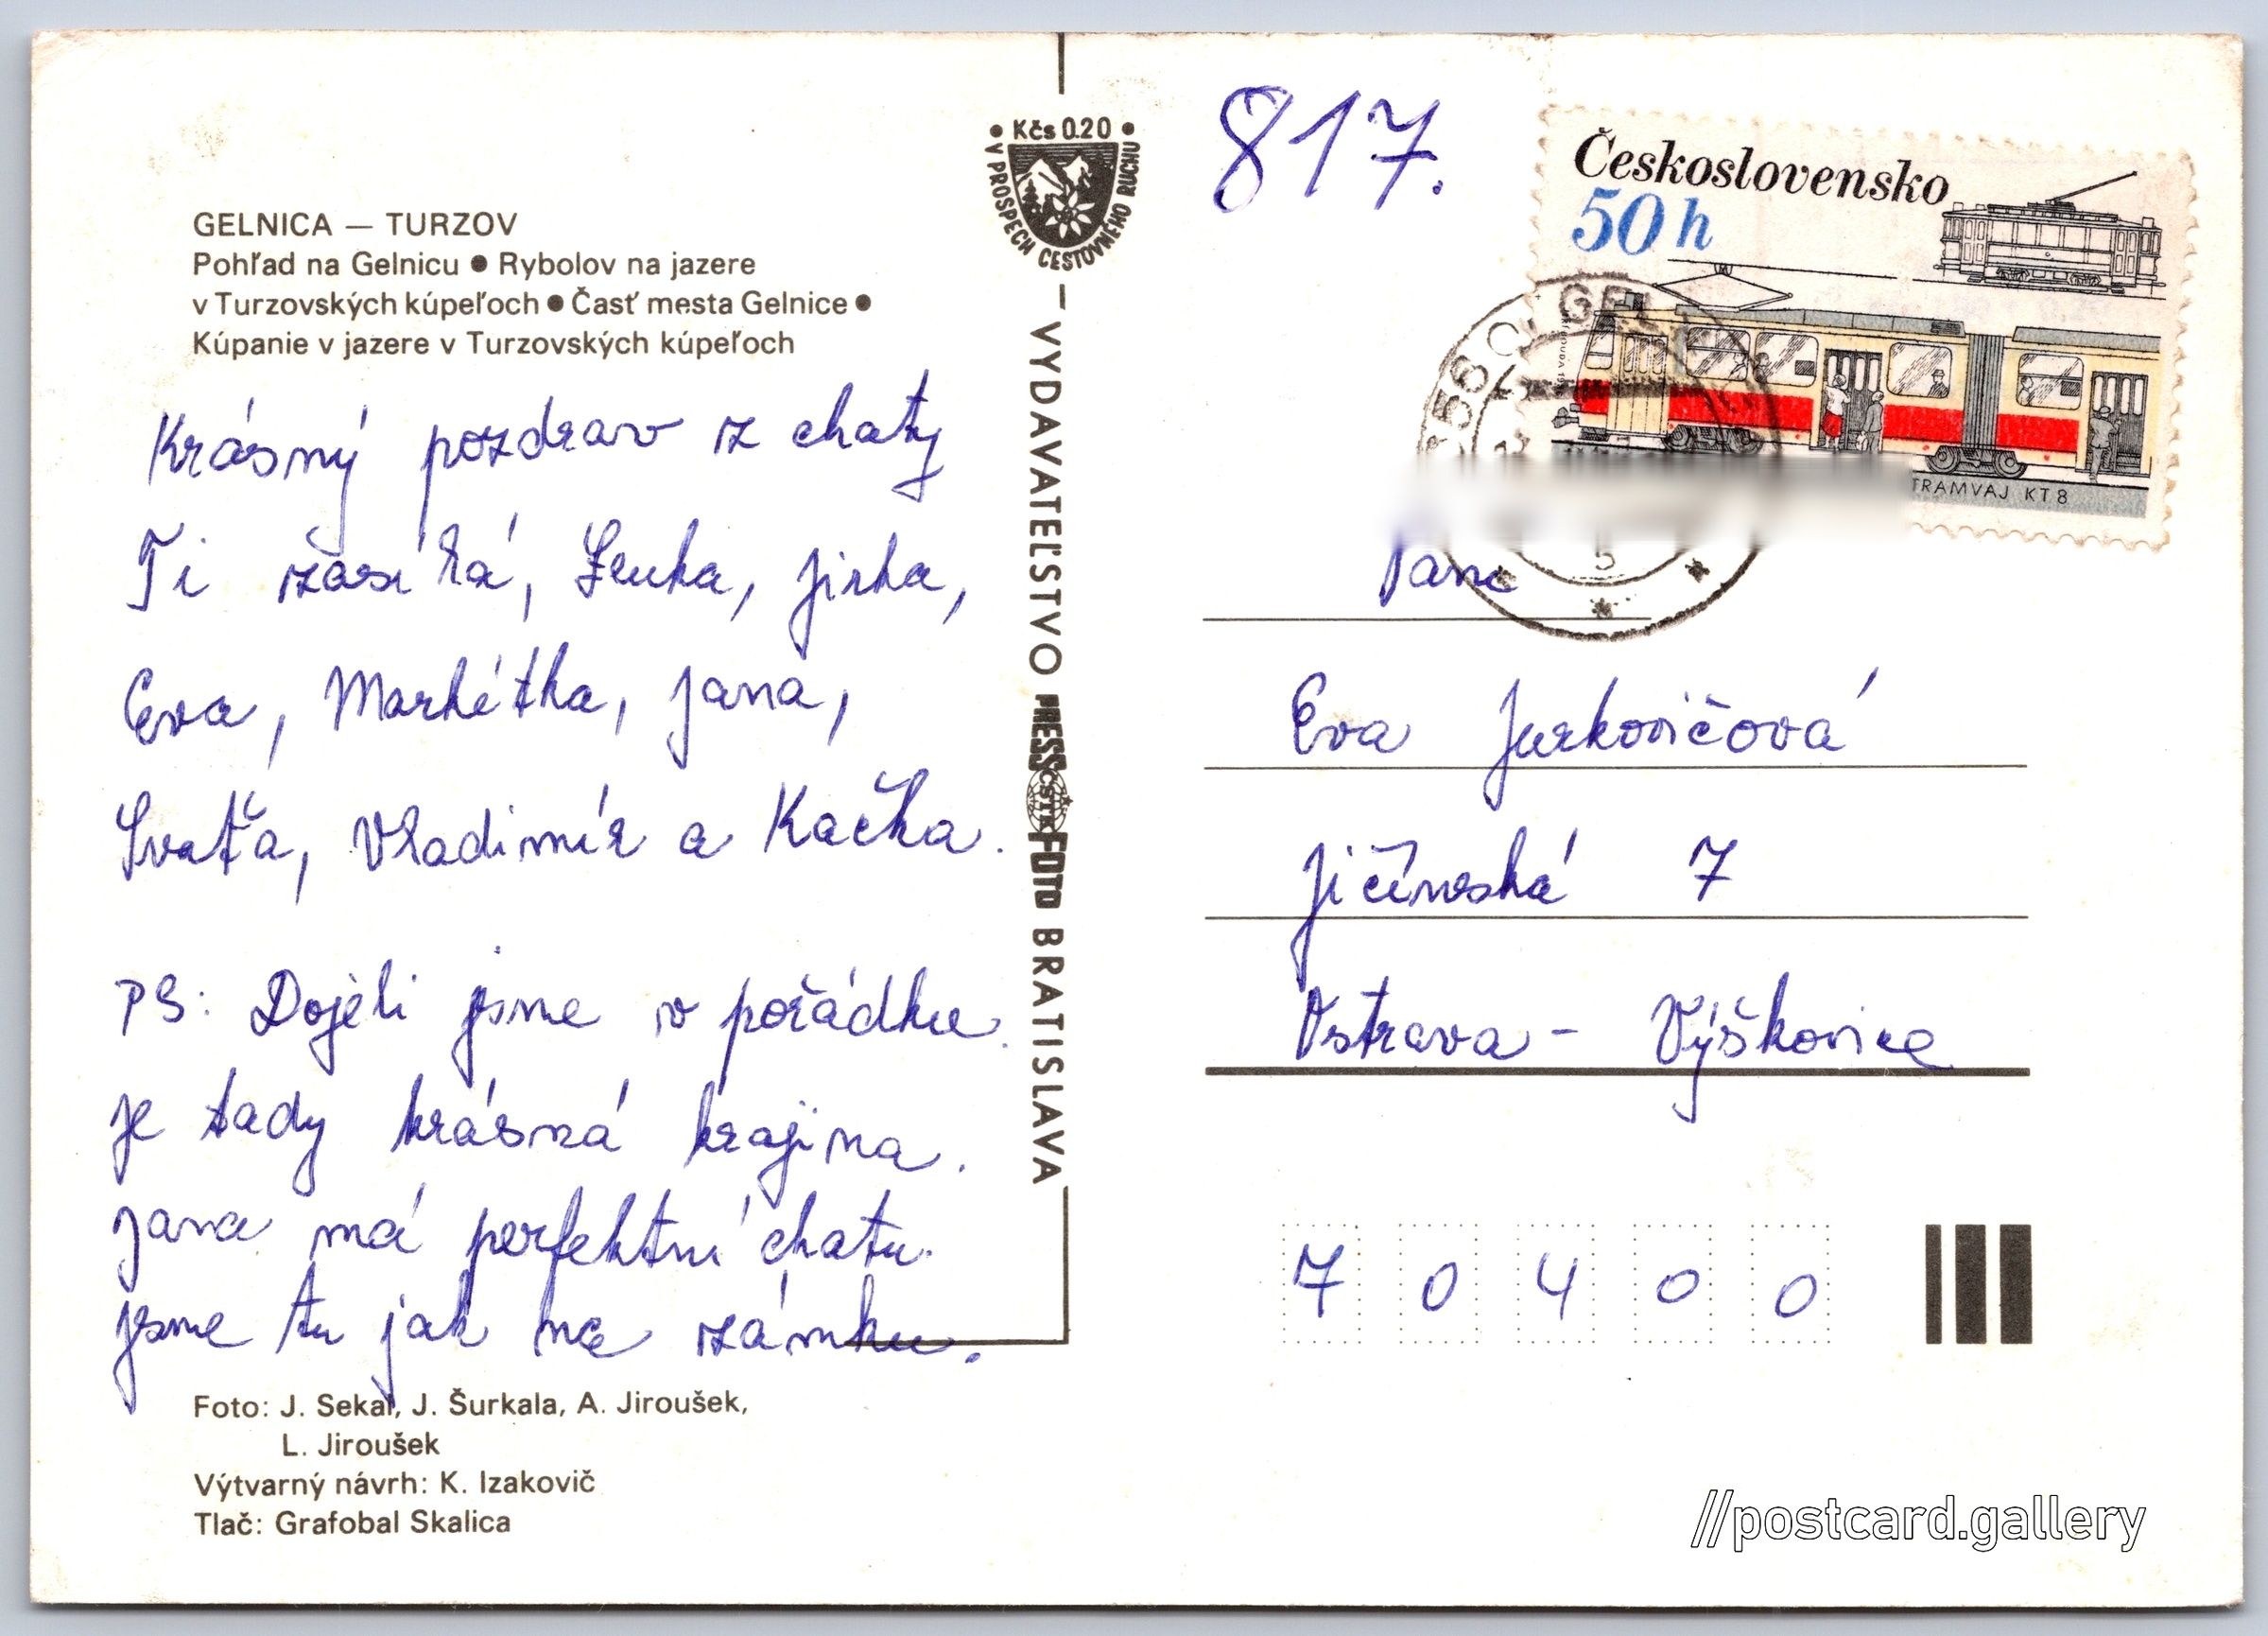 GELNICA — TURZOV
Pohľad na Gelnicu ● Rybolov na jazere
v Turzovských kúpeľoch ● Časť mesta Gelnice ●
Kúpanie v jazere v Turzovských kúpeľoch
Krásný pozdrav z chaty
Ti zasílá, Lenka, Jirka,
Eva, Markétka, Jana,
Svaťa, Vladimír a Kačka.
PS: Dojeli jsme v pořádku.
Je tady krásná krajina.
Jana má perfektní chatu.
jsme tu jak na zámku.
Foto: J. Sekal, J. Šurkala, A. Jiroušek,
L. Jiroušek
Výtvarný návrh: K. Izakovič
Tlač: Grafobal Skalica
• Kčs 0.20 •
V PROSPECH CESTOVNÉHO RUCHU
VYDAVATEĽSTVO PRESSFOTO BRATISLAVA
ČSTK
817.
Československo
50 h
TRAMVAJ KT 8
5
Paní
Eva Jurkovičová
Jičínská 7
Ostrava - Výškovice
7 0 4 0 0
//postcard.gallery